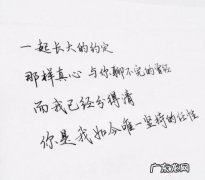 一起长大的约定
那样真心 与你聊不完的曾经
而我已经分得清
你是我如今唯一坚持的任性
广东农网